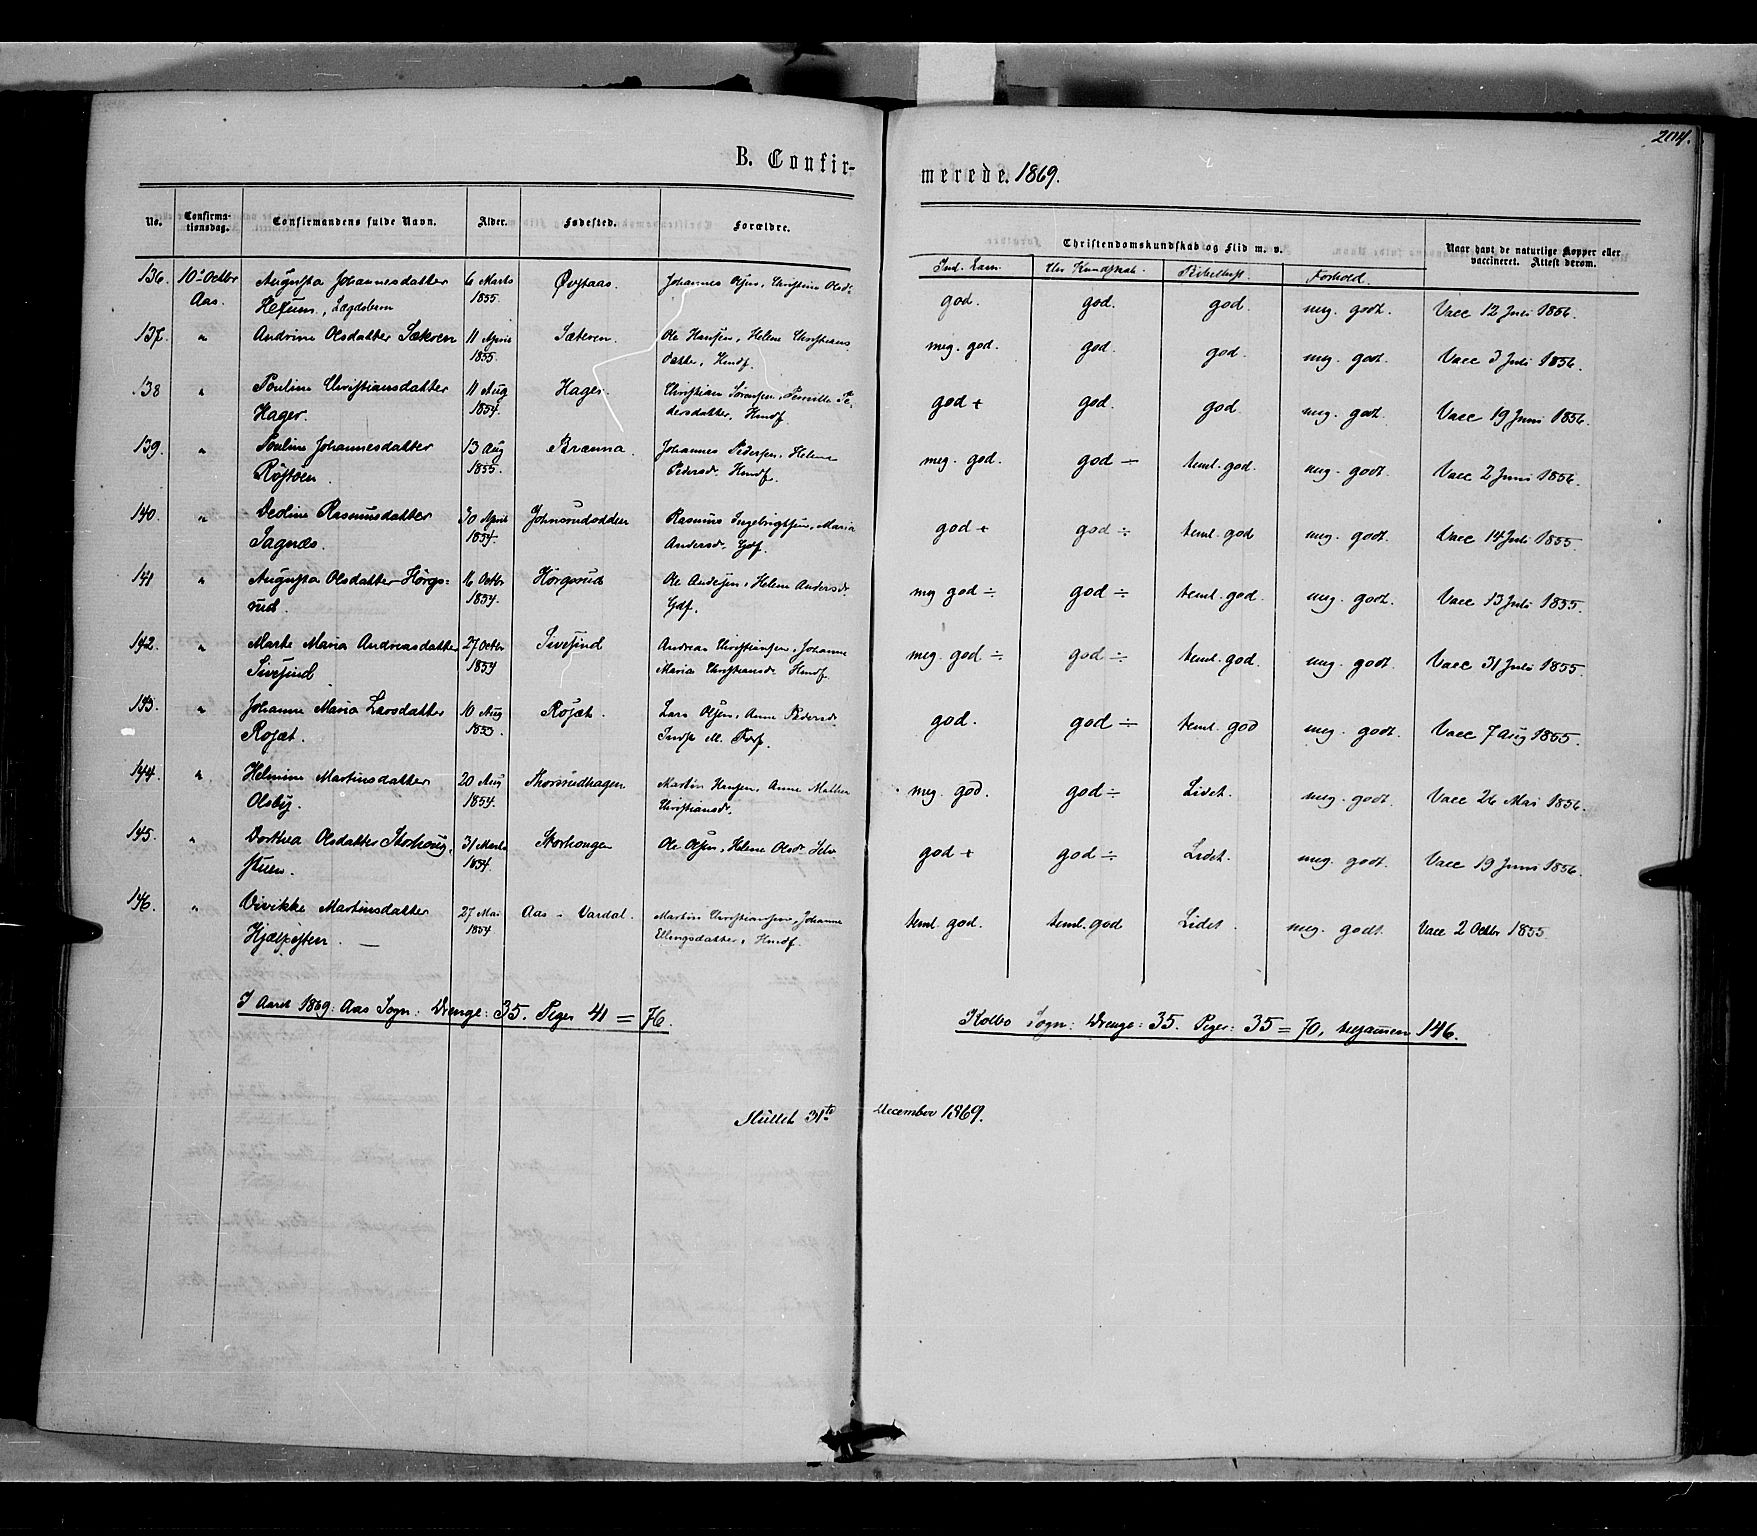 204.
B. Confir-
merede. 1869.
No.
Confirma-
tionsdag.
Confirmandens fulde Navn.
Alder.
Fødested.
Forældre.
Christendomskundskab og Flid m. v.
Naar havt de naturlige Kopper eller
vaccineret. Attest derom.
Chr Kundskab.
Forhold.
136. 10de Octbr Augusta Johannesdatter 6 Marts Øvstaas. Johannes Olsen, Christine Olsdr god. god. god meg. godt. Vacc 12 Juli 1856.
Aas. 1855.
137. " Andrine Olsdatter Sætren 11 April Sæteren. Ole Hansen, Helene Christians meg. god. god. god. meg. godt Vacc 3 Juli 1856.
1855. datter, Hmdf.
138 " Pauline Christiansdatter 11 Aug Hager. Christian Sørensen, Pernille Pe- god + god. god meg. godt Vacc 19 Juni 1856.
Hager. 1854. dersdatter, Hmdf.
139. " Pouline Johannesdatter 13 Aug Brænna. Johannes Pedersen, Helene meg. god. god ÷ teml. god. meg. godt. Vacc 2 Juni 1856.
1855. Pedersdr Hmdf.
140. " Deoline Rasmusdatter 30 April Johnsrudodden Rasmus Ingebrigtsen, Maria god + god ÷ teml. god meg. godt. Vacc 14 Juli 1855.
Sagnæs. 1854. Andersdr Gdf.
141 " Augusta Olsdatter Hörgs= 16 Octbr Hörgsrud Ole Andersen, Helene Andersdr meg god ÷ god ÷ teml. god. meg. godt. Vacc 13 Juli 1855.
rud. 1854. Gdf.
142. " Marte Maria Andreasdatter 27 Octbr Sivesind Andreas Christiansen, Johanne meg. god ÷ god ÷ teml. god. meg. godt. Vacc 31 Juli 1855.
Sivesind 1854 Maria Christiansdr Hmdf.
143. " Johanne Maria Larsdatter 10 Aug Rosæt. Lars Olsen, Anne Pedersdr god. god ÷ teml. god meg. godt. Vacc 7 Aug 1855.
Rosæt.
144. " Helmine Martinsdatter 20 Aug Thorsrudhagen Martin Hansen, Anne Mathea meg. god. god ÷ Lidet. meg. godt. Vacc 26 Mai 1856.
Olsby. 1854. Christiansdr
145. " Dorthea Olsdatter Storhoug, 31 Marts Storhougen Ole Olsen, Helene Olsdr god + god ÷ Lidet. meg. godt. Vacc 19 Juni 1856.
stuen. 1854.
146. " Vivikke Martinsdatter 27 Mai Aas - Vardal. Martin Christiansen, Johanne teml. god. teml. god Lidet. meg. godt. Vacc 2 Octbr 1855.
1854 Ellingsdatter, Hmdf.
I Aaret 1869: Aas Sogn: Drenge: 35. Piger 41 = 76.
Kolbo Sogn: Drenge: 35. Piger: 35 = 70, tilsammen 146.
Sluttet 31te December 1869.